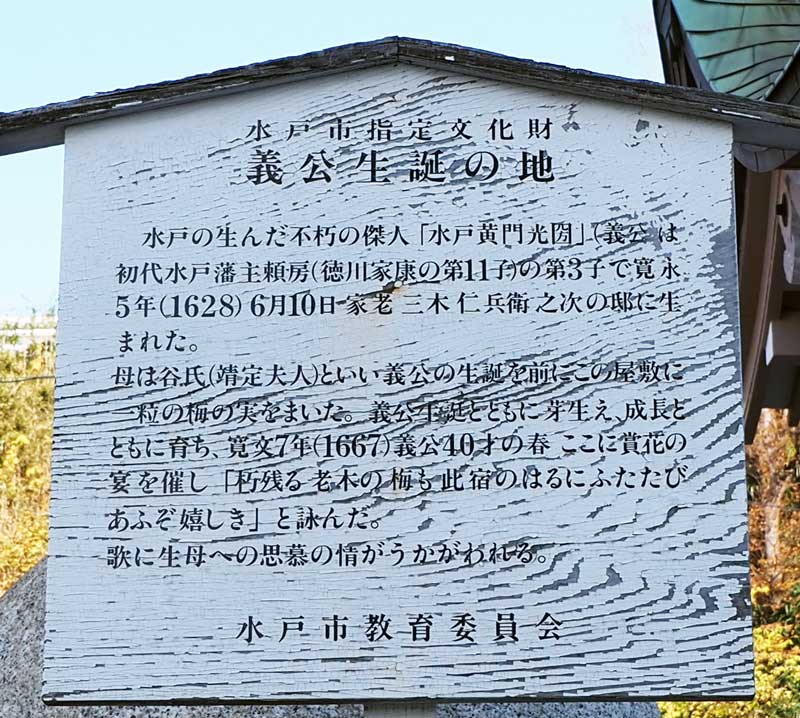 水戸市指定文化財
義公生誕の地
水戸の生んだ不朽の傑人「水戸黄門光圀」(義公は
初代水戸藩主頼房(徳川家康の第11子)の第3子で寛永
5年(1628)6月10日家老三木仁兵衛之次の邸に生
まれた。
母は谷氏(靖定夫人)といい義公の生誕を前にこの屋敷に
一粒の梅の実をまいた。義公生誕とともに芽生え、成長と
ともに育ち、寛文7年(1667)義公40才の春ここに賞花の
宴を催し「朽残る老木の梅も此宿のはるにふたたび
あふぞ嬉しき」と詠んだ。
歌に生母への思慕の情がうかがわれる。
水戸市教育委員会